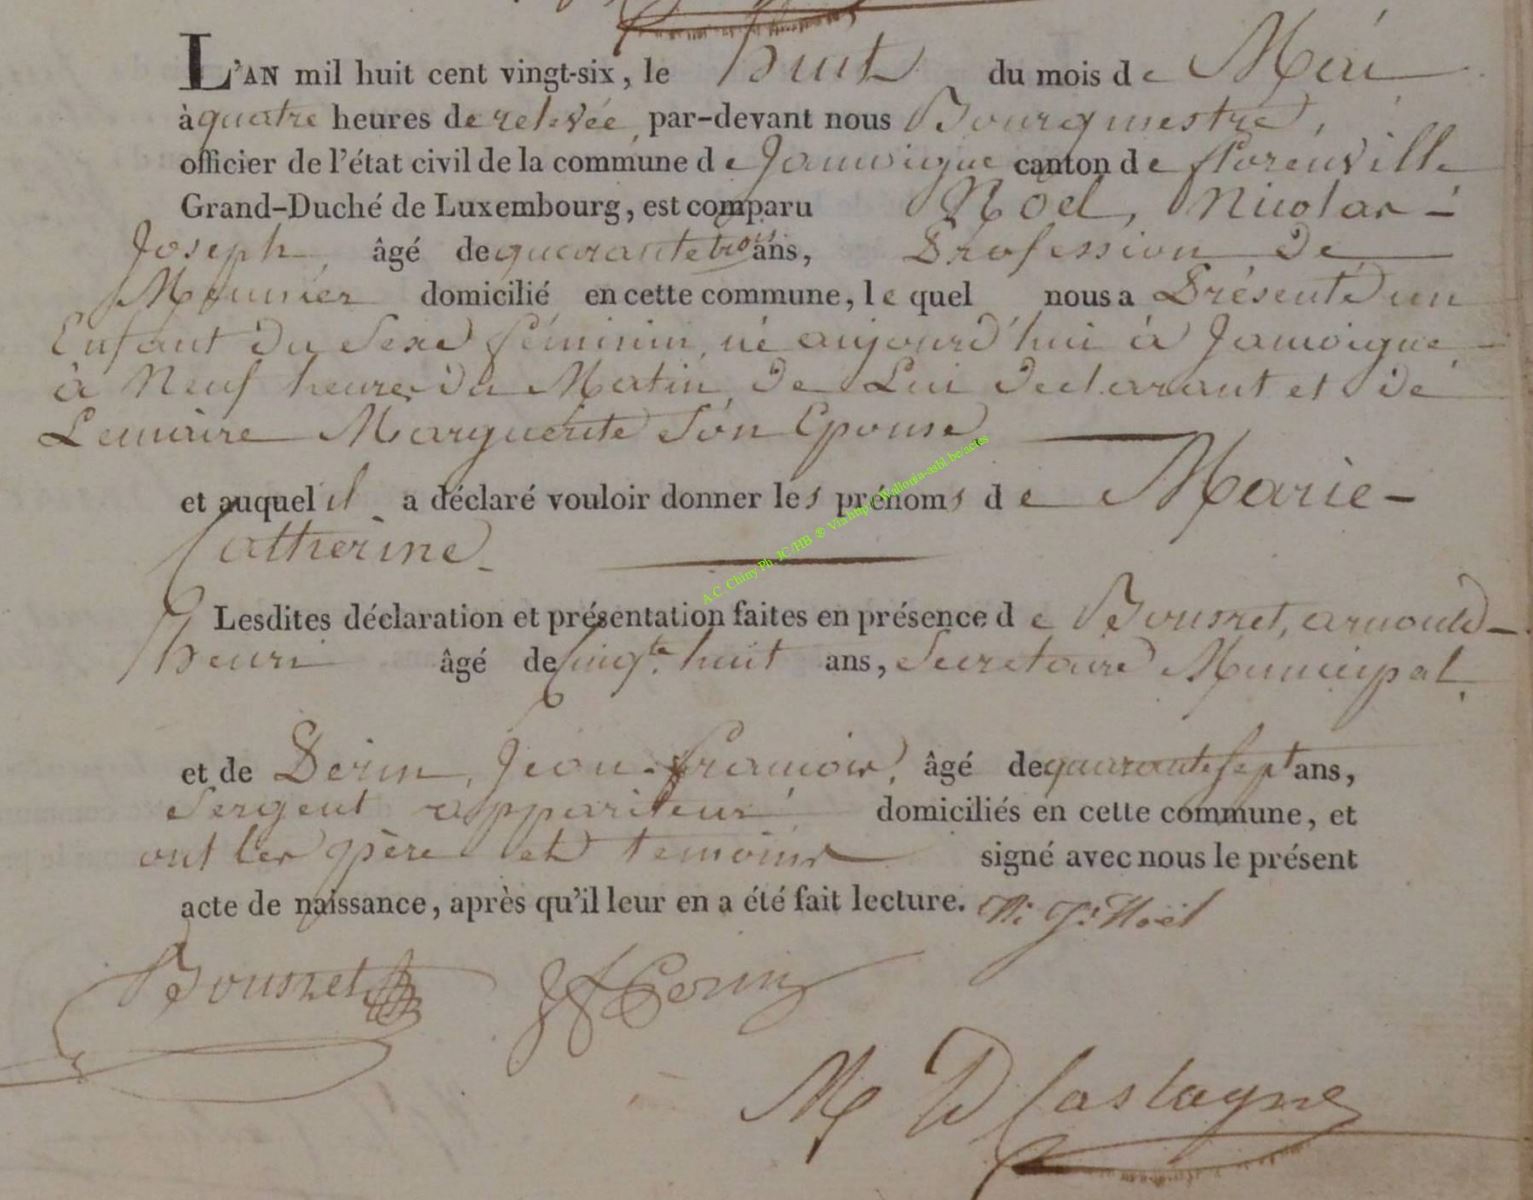 L'AN mil huit cent vingt-six, le huit du mois de Mai
à quatre heures de relevée, par-devant nous Bourgmestre,
officier de l'état civil de la commune de Jamoigne canton de florenville
Grand-Duché de Luxembourg, est comparu Noël, Nicolas-
Joseph, âgé de quarante trois ans, Profession de
Meunier domicilié en cette commune, lequel nous a Présenté un
Enfant du Sexe féminin, né aujourd'hui à Jamoigne,
à Neuf heures du Matin, de Lui déclarant et de
Lemaire Marguerite Son Epouse,
et auquel il a déclaré vouloir donner les prénoms de Marie-
Catherine.
Lesdites déclaration et présentation faites en présence de Bousret, arnould-
henri âgé de cinqte. huit ans, Secretaire Municipal,
et de Perin, Jean-françois, âgé de quarante sept ans,
Sergent appariteur domiciliés en cette commune, et
ont les père et temoins signé avec nous le présent
acte de naissance, après qu'il leur en a été fait lecture. N. J. Noël
Bousret JF Perin
M D Castagne
A.C. Chiny Ph. JC/HB ® Via http:// Wallonia-asbl.be/actes